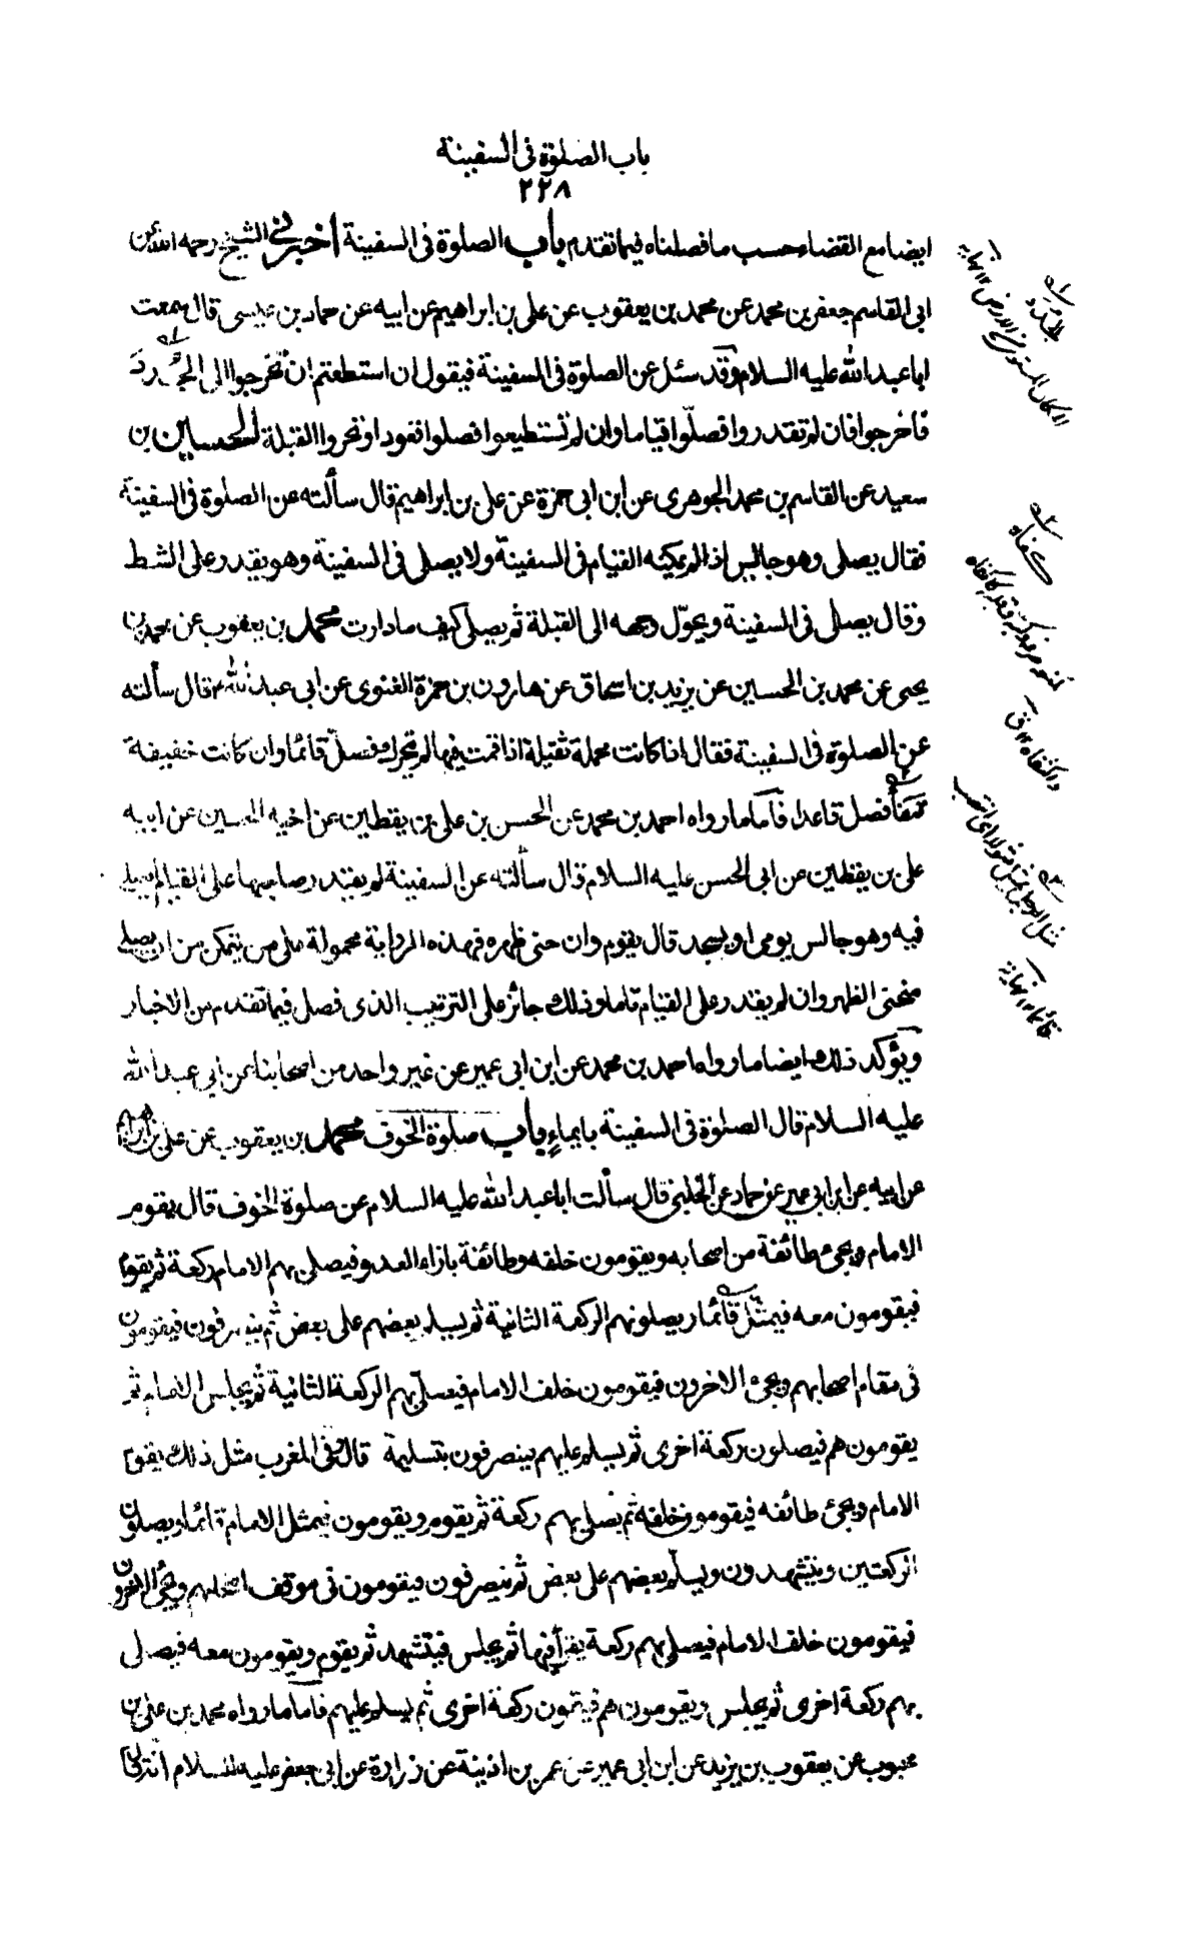 باب الصلوة فى السفينة
٢٢٨
ايضا مع القضاء حسب ما فصلناه فيما تقدم باب الصلوة فى السفينة اخبرنى الشيخ رحمه الله عن
ابى القاسم جعفر بن محمد عن محمد بن يعقوب عن على بن ابراهيم عن ابيه عن حماد بن عيسى قال سمعت
ابا عبد الله عليه السلام وقد سئل عن الصلوة فى السفينة فيقول ان استطعتم ان تخرجوا الى الجدد
فاخرجوا فان لم تقدروا فصلّوا قياما وان لم تستطيعوا فصلوا قعودا وتحروا القبلة الحسين بن
سعيد عن القاسم بن محمد الجوهرى عن ابن ابى حمزة عن على بن ابراهيم قال سألته عن الصلوة فى السفينة
فقال يصلى وهو جالس اذا لم يمكنه القيام فى السفينة ولا يصلى فى السفينة وهو يقدر على الشط
وقال يصلى فى السفينة ويحوّل وجهه الى القبلة ثم يصلى كيف ما دارت محمد بن يعقوب عن محمد بن
يحيى عن محمد بن الحسين عن يزيد بن اسحاق عن هارون بن حمزة الغنوى عن ابى عبد الله ع قال سألته
عن الصلوة فى السفينة فقال اذا كانت محملة ثقيلة اذا قمت فيها لم تحرك فصلّ قائما وان كانت خفيفة
تكفأ فصل قاعدا فأما ما رواه احمد بن محمد عن الحسن بن على بن يقطين عن اخيه الحسين عن ابيه
على بن يقطين عن ابى الحسن عليه السلام قال سألته عن السفينة لم يقدر صاحبها على القيام ايصلى
فيه وهو جالس يومى او يسجد قال يقوم وان حنى ظهره فهذه الرواية محمولة على من يتمكن من ان يصلى
منحنى الظهر وان لم يقدر على القيام تاما وذلك جائز على الترتيب الذى فصل فيما تقدم من الاخبار
ويؤكد ذلك ايضا ما رواه احمد بن محمد عن ابن ابى عمير عن غير واحد من اصحابنا عن ابى عبد الله
عليه السلام قال الصلوة فى السفينة بايماء باب صلوة الخوف محمد بن يعقوب عن على بن ابراهيم
عن ابيه عن ابن ابى عمير عن حماد عن الحلبى قال سألت ابا عبد الله عليه السلام عن صلوة الخوف قال يقوم
الامام ويجئ طائفة من اصحابه ويقومون خلفه وطائفة بازاء العدو فيصلى بهم الامام ركعة ثم يقوم
فيقومون معه فيمثل قائما ويصلون هم الركعة الثانية ثم يسلم بعضهم على بعض ثم ينصرفون فيقومون
فى مقام اصحابهم ويجئ الاخرون فيقومون خلف الامام فيصلّى بهم الركعة الثانية ثم يجلس الامام ثم
يقومون هم فيصلون ركعة اخرى ثم يسلم عليهم ينصرفون بتسليمة قال وفى المغرب مثل ذلك يقوم
الامام ويجئ طائفه فيقومون خلفه ثم يصلى بهم ركعة ثم يقوم ويقومون فيمثل الامام قائما ويصلون
الركعتين ويتشهدون ويسلّم بعضهم على بعض ثم ينصرفون فيقومون فى موقف اصحابهم ويجئ الاخرون
فيقومون خلف الامام فيصلى بهم ركعة يقرأ فيها ثم يجلس فيتشهد ثم يقوم ويقومون معه فيصلى
بهم ركعة اخرى ثم يجلس ويقومون هم فيتمون ركعة اخرى ثم يسلم عليهم فأما ما رواه محمد بن على بن
محبوب عن يعقوب بن يزيد عن ابن ابى عمير عن عمر بن اذينة عن زرارة عن ابى جعفر عليه السلام انه قال
الجُدَد
المستوى من الارض ١٢ نهاية
كفأه
قائما ١٢ نهاية